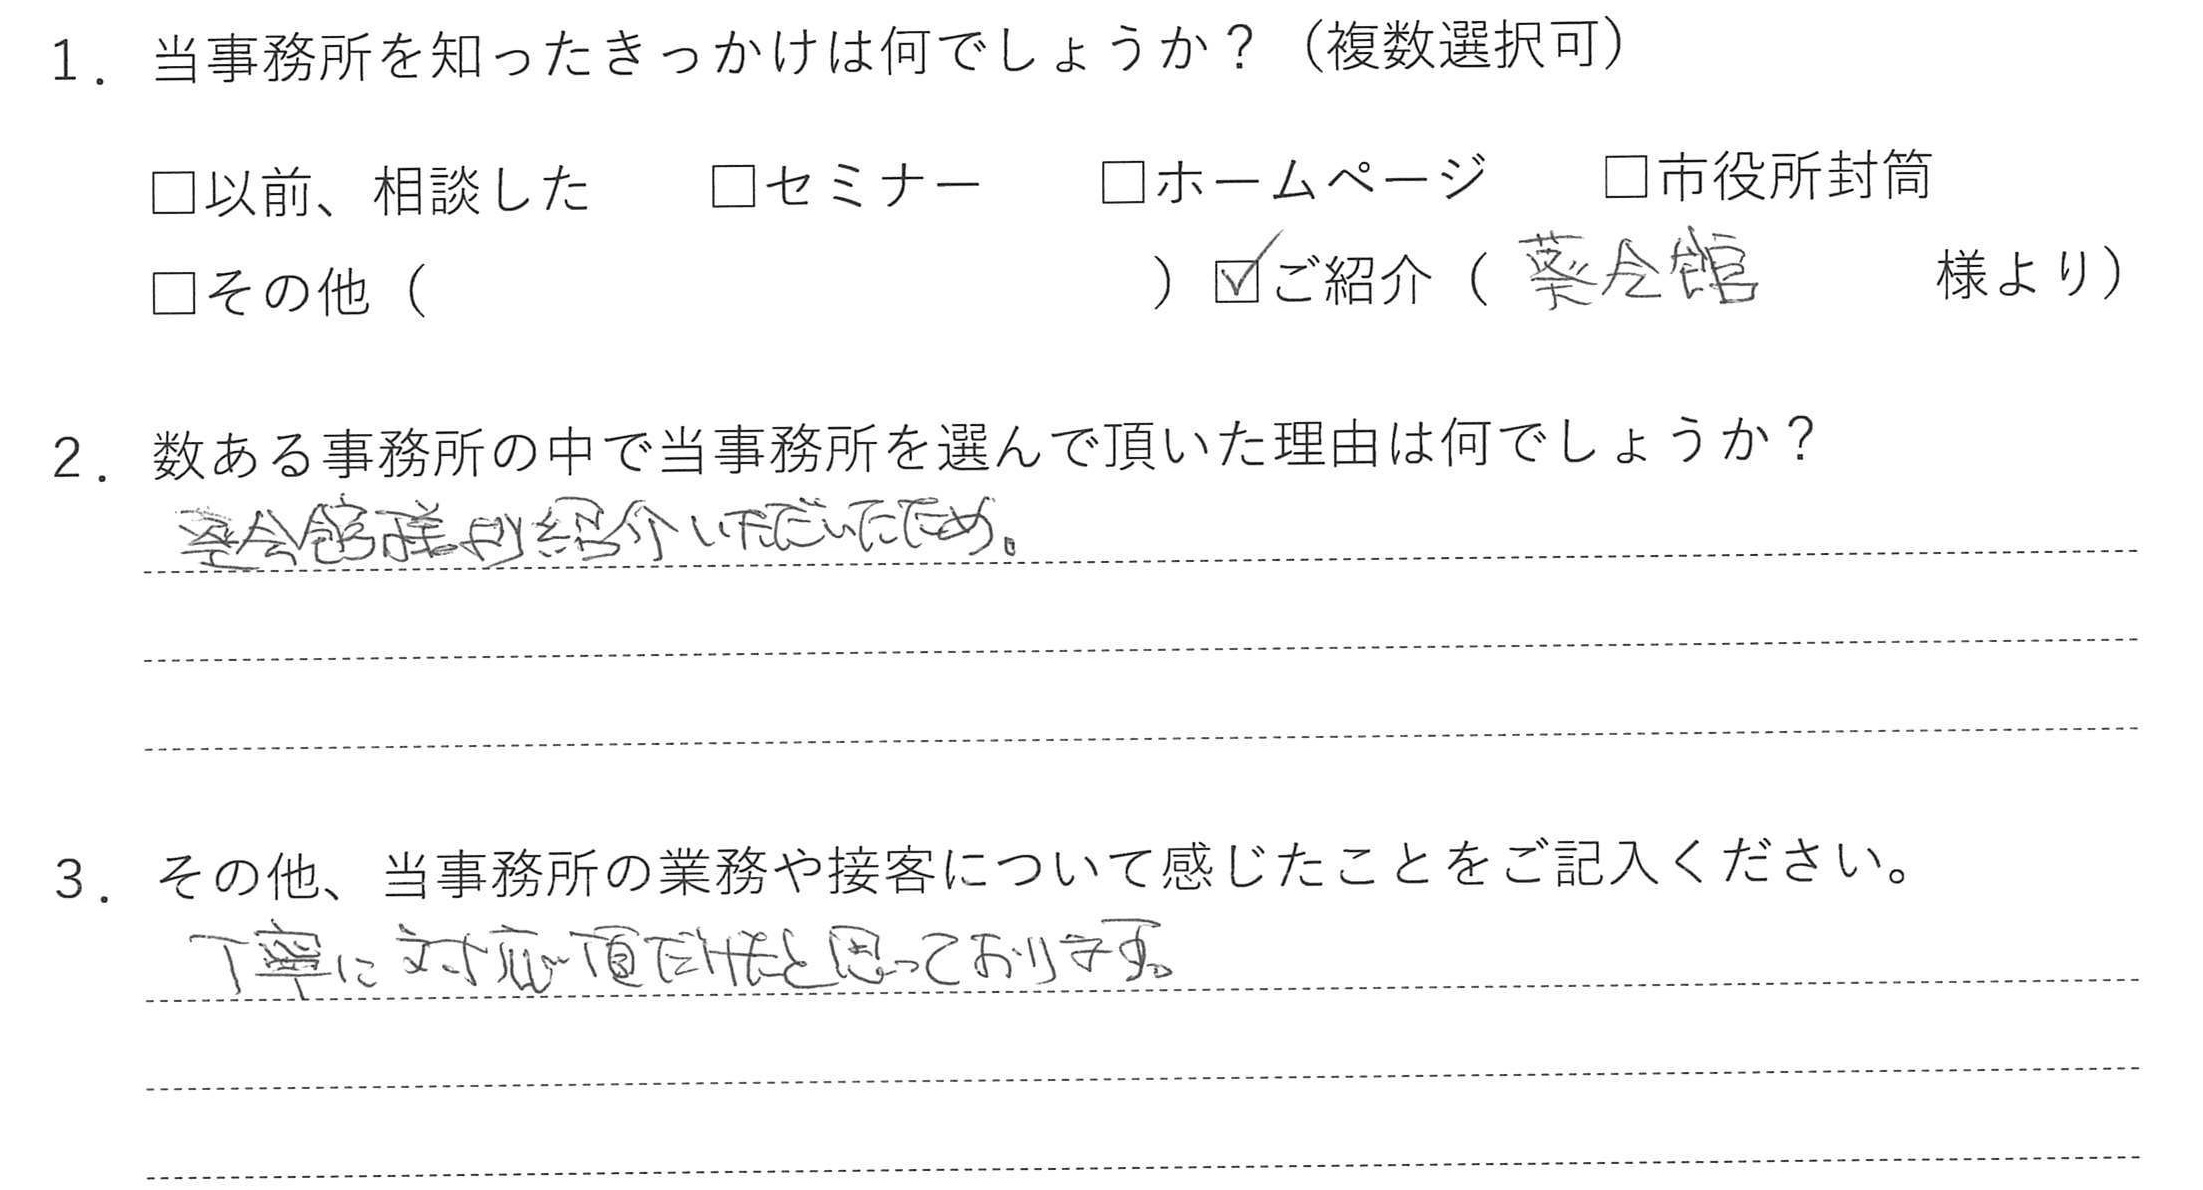 1．当事務所を知ったきっかけは何でしょうか？（複数選択可）
□以前、相談した □セミナー □ホームページ □市役所封筒
□その他（ ）☑ご紹介（ 葵会館 様より）
2．数ある事務所の中で当事務所を選んで頂いた理由は何でしょうか？
葵会館様より紹介いただいたため。
3．その他、当事務所の業務や接客について感じたことをご記入ください。
丁寧に対応頂だけたと思っております。